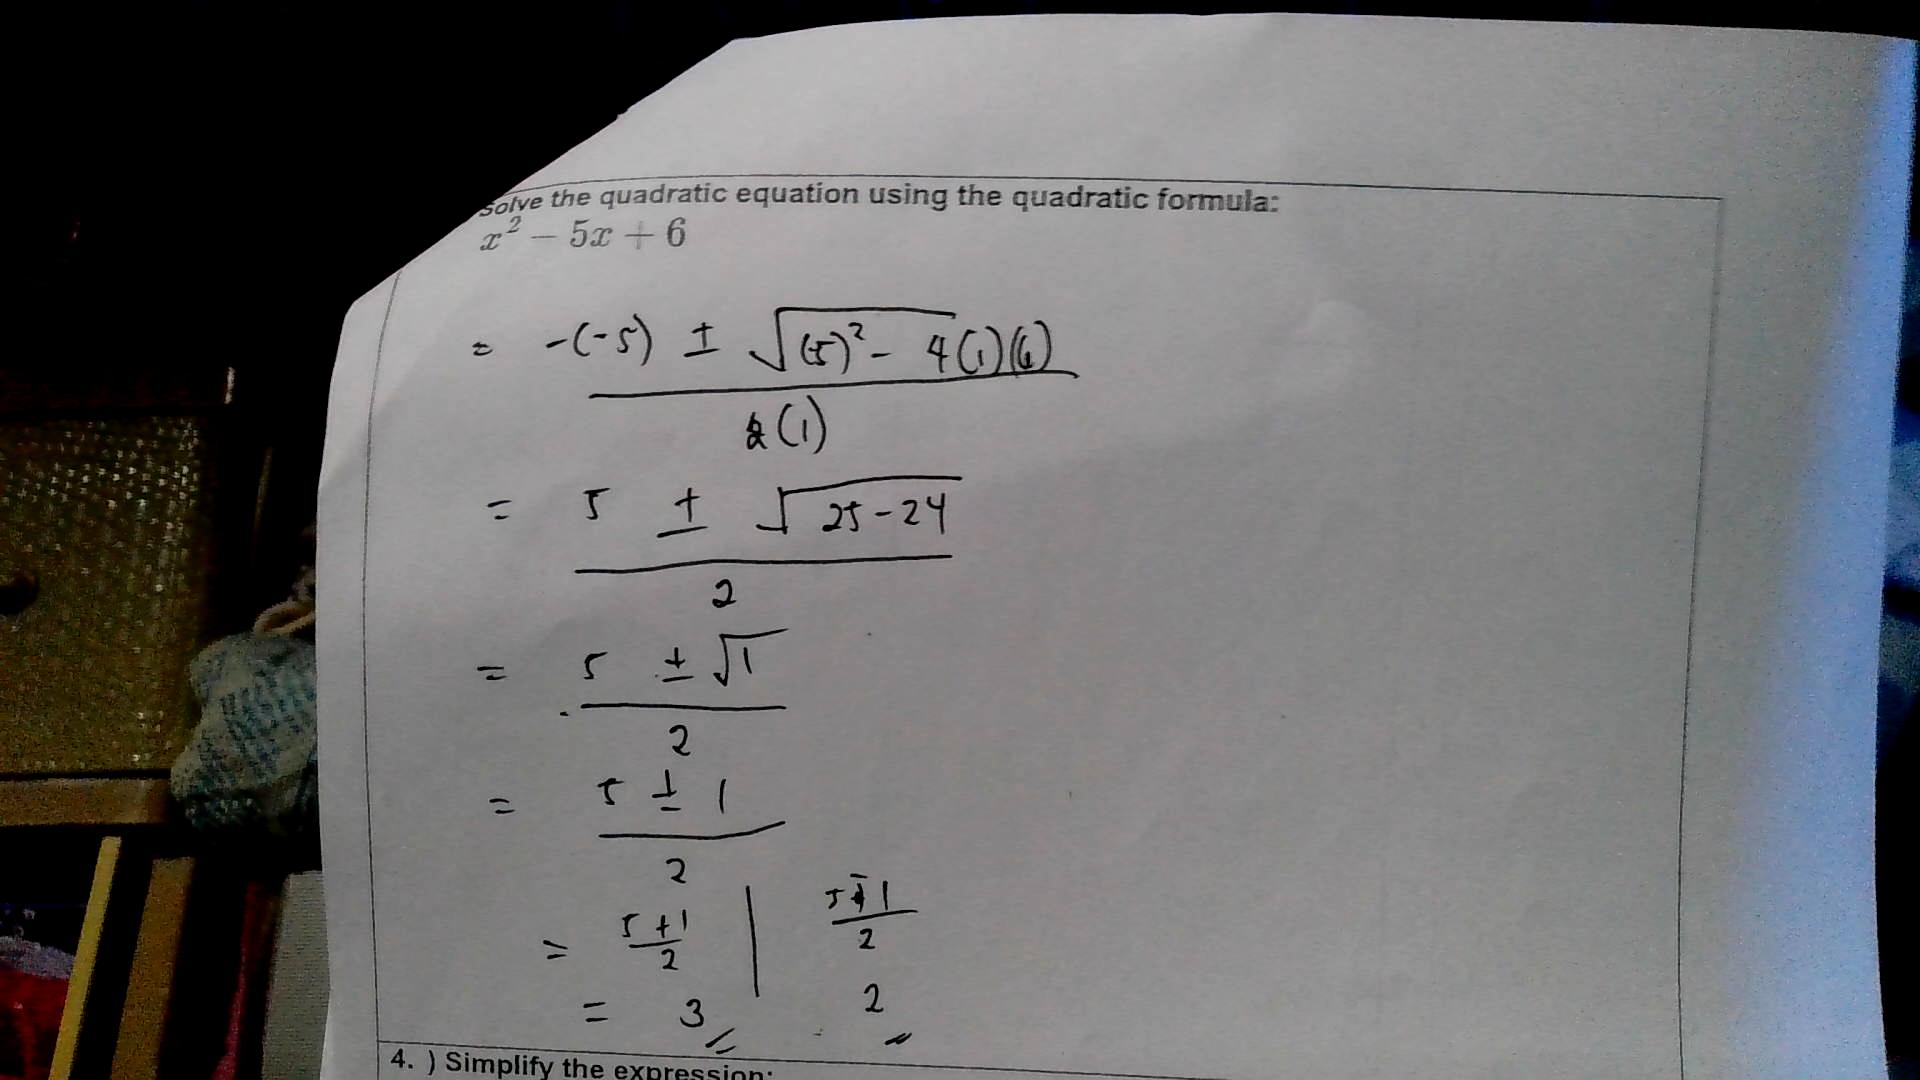 Solve the quadratic equation using the quadratic formula:
x² − 5x + 6
= -(-5) ± √(-5)² - 4(1)(6)
2(1)
= 5 ± √25-24
2
= 5 ± √1
2
= 5 ± 1
2
= 5+1 | 5-1
2 2
= 3 2
4. ) Simplify the expression: